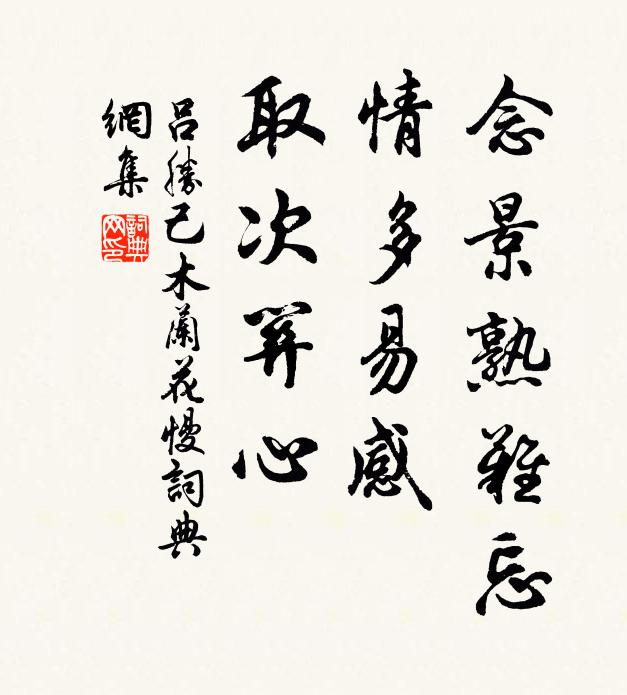 念景熟難忘
情多易感
取次關心
呂勝己木蘭花慢詞典
網集
詞典
网印